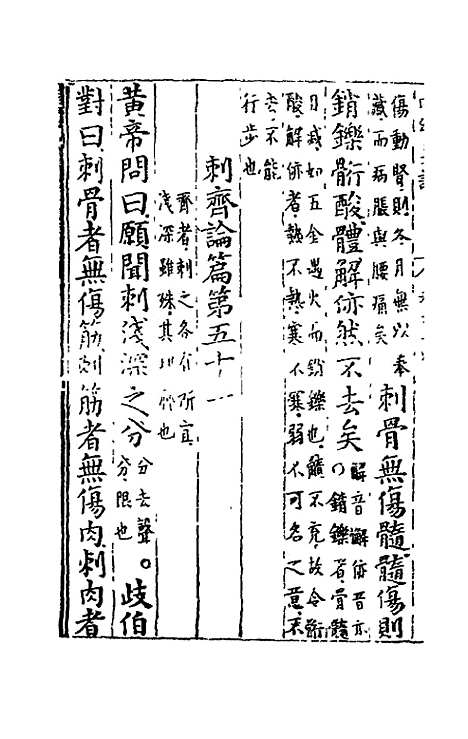 傷動腎則冬月無以奉
藏而病脹與腰痛矣
刺骨無傷髓髓傷則
銷鑠胻酸體解㑊然不去矣
解音懈㑊音亦
○銷鑠者骨髓
日減如五金遇火而銷鑠也髓不充故令胻
酸解㑊者熱不熱寒不寒弱不可名之意不
去不能
行步也
刺齊論篇第五十一
齊者刺之各有所宜
淺深雖殊其

齊也
黃帝問曰願聞刺淺深之分
分去聲
分限也
○岐伯
對曰刺骨者無傷筋刺筋者無傷肉刺肉者